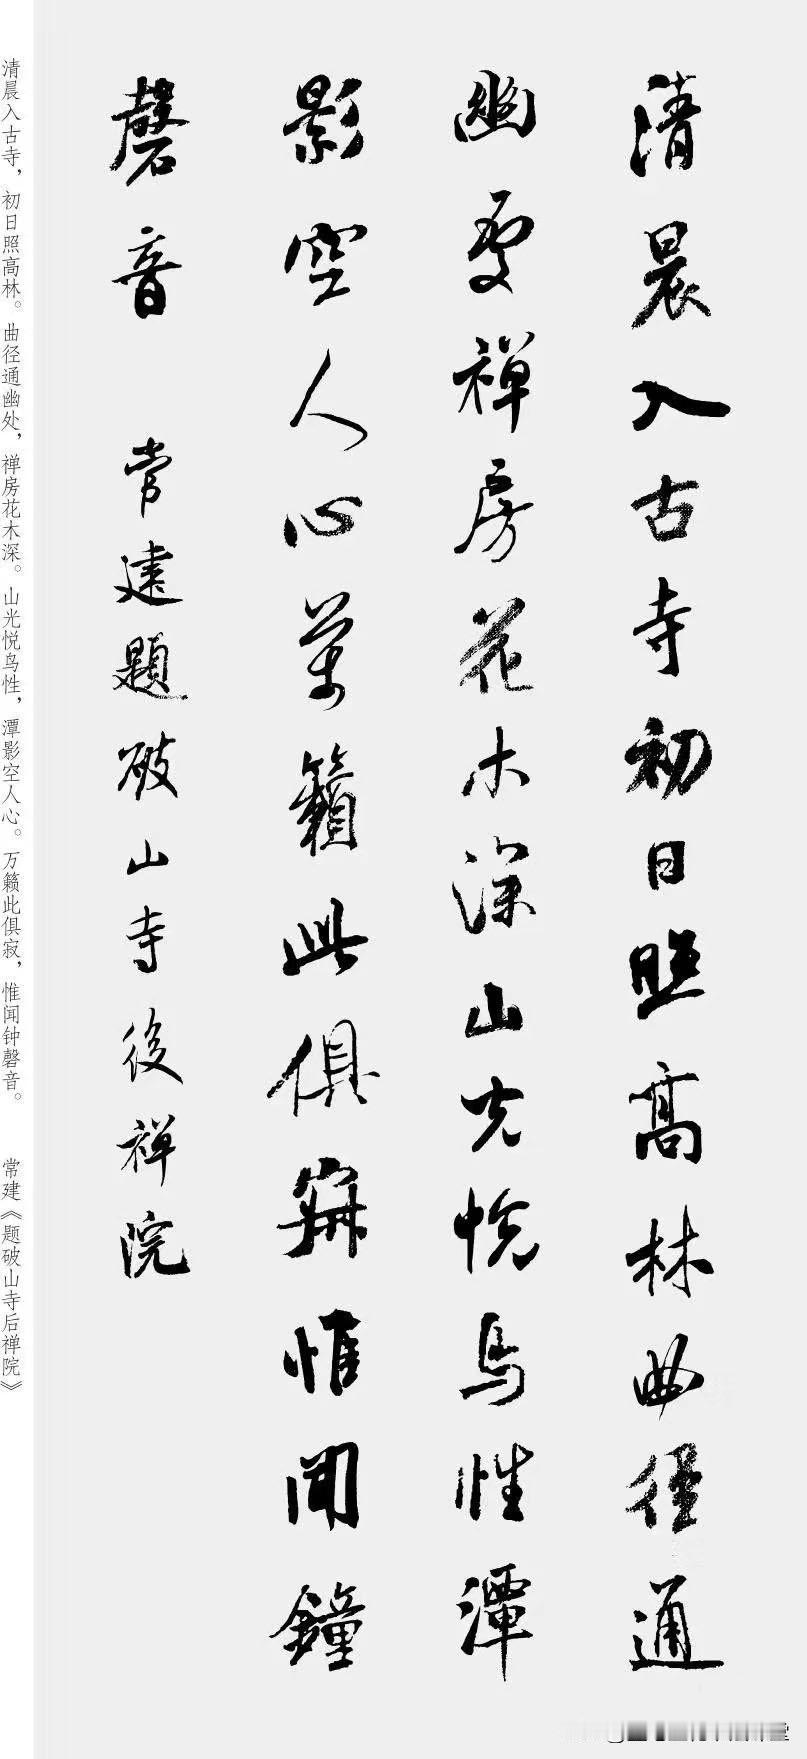 清晨入古寺初日照高林曲径通
幽處禅房花木深山光悦鸟性潭
影空人心万籟此俱寂惟聞鐘
磬音 常建題破山寺後禅院
清晨入古寺，初日照高林。曲径通幽处，禅房花木深。山光悦鸟性，潭影空人心。万籁此俱寂，惟闻钟磬音。 常建《题破山寺后禅院》